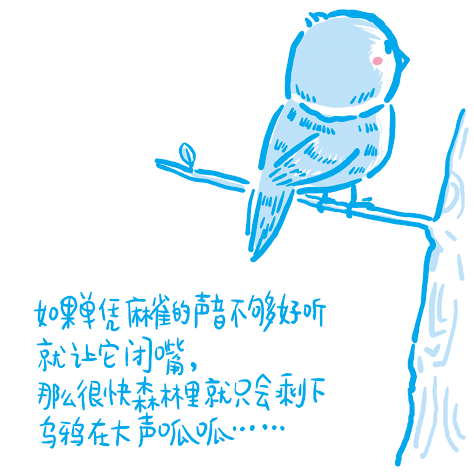 如果单凭麻雀的声音不够好听
就让它闭嘴，
那么很快森林里就只会剩下
乌鸦在大声呱呱……